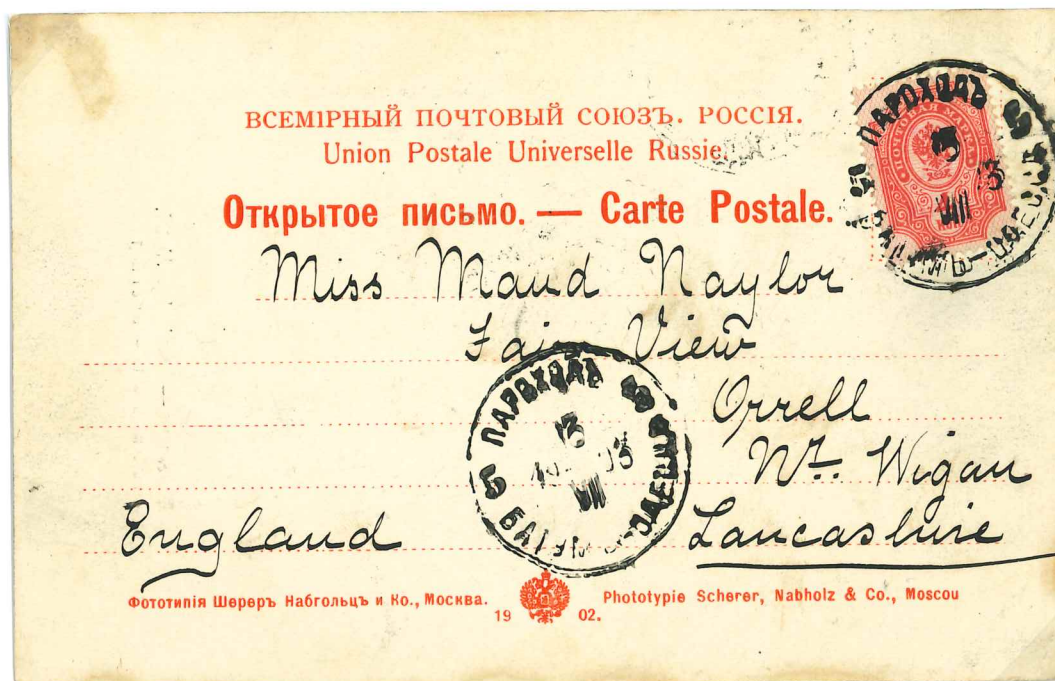 ВСЕМІРНЫЙ ПОЧТОВЫЙ СОЮЗЪ. РОССІЯ.
Union Postale Universelle Russie.
Открытое письмо. — Carte Postale.
ПОЧТОВАЯ МАРКА
ПАРОХОДЪ
Miss Maud Naylor
Fair View
Orrell
Nr. Wigan
Lancashire
England
ПАРОХОДЪ
13
VIII
БАТУМЪ-ОДЕССА
Фототипія Шереръ Набгольцъ и Ко., Москва.
1902.
Phototypie Scherer, Nabholz & Co., Moscou